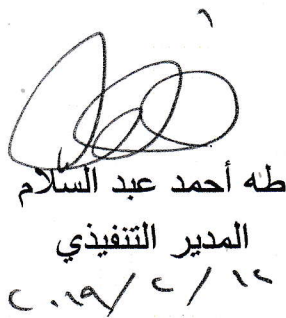 طه أحمد عبد السلام
المدير التنفيذي
١٢ / ٢ / ٢٠١٩